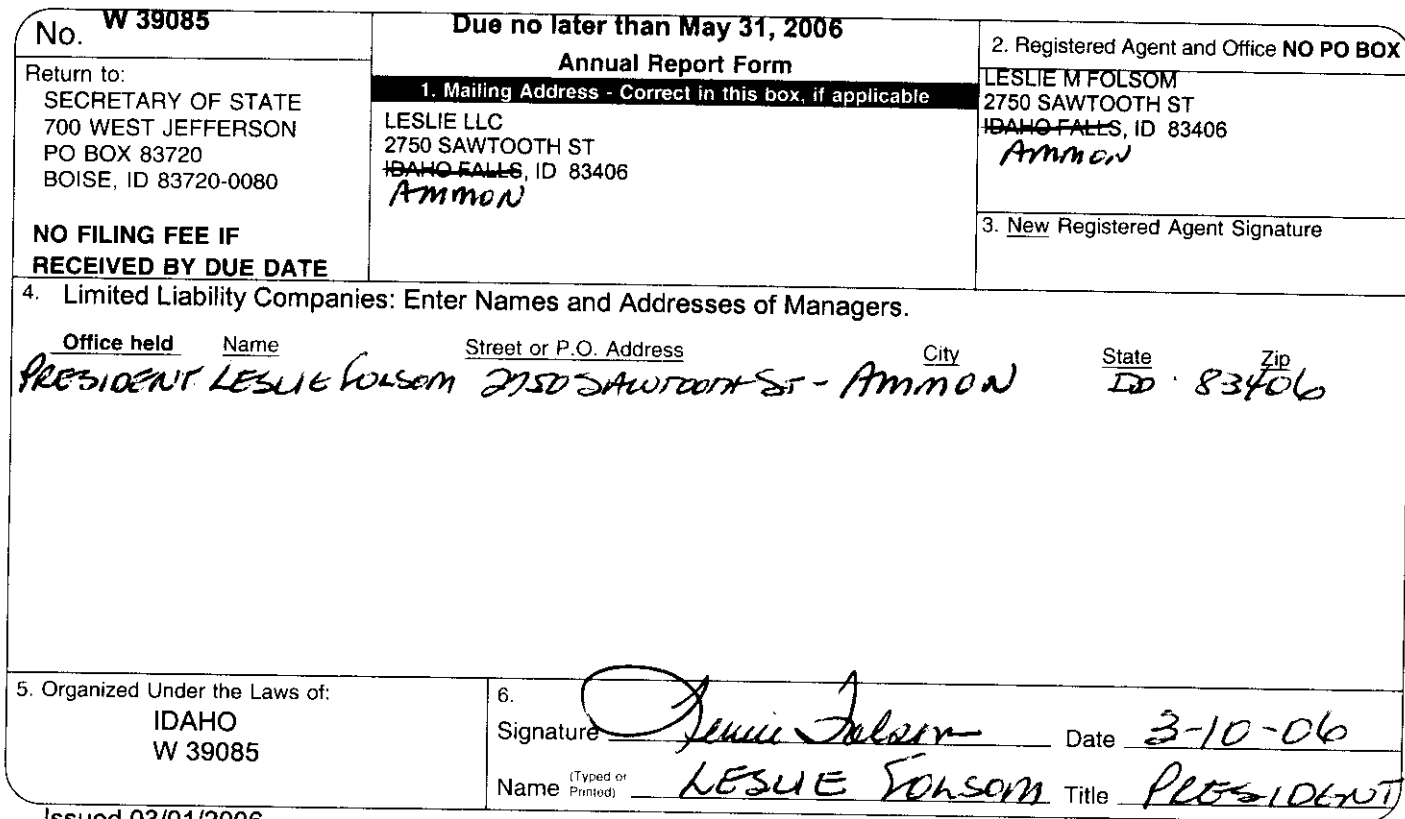 No. W 39085
Return to:
SECRETARY OF STATE
700 WEST JEFFERSON
PO BOX 83720
BOISE, ID 83720-0080
NO FILING FEE IF
RECEIVED BY DUE DATE
Due no later than May 31, 2006
Annual Report Form
1. Mailing Address - Correct in this box, if applicable
LESLIE LLC
2750 SAWTOOTH ST
IDAHO FALLS, ID 83406
AMMON
2. Registered Agent and Office NO PO BOX
LESLIE M FOLSOM
2750 SAWTOOTH ST
IDAHO FALLS, ID 83406
AMMON
3. New Registered Agent Signature
4. Limited Liability Companies: Enter Names and Addresses of Managers.
Office held Name Street or P.O. Address City State Zip
PRESIDENT LESLIE FOLSOM 2750 SAWTOOTH ST - AMMON ID 83406
5. Organized Under the Laws of:
IDAHO
W 39085
6.
Signature Leslie Folsom Date 3-10-06
Name (Typed or Printed) LESLIE FOLSOM Title PRESIDENT
Issued 03/01/2006